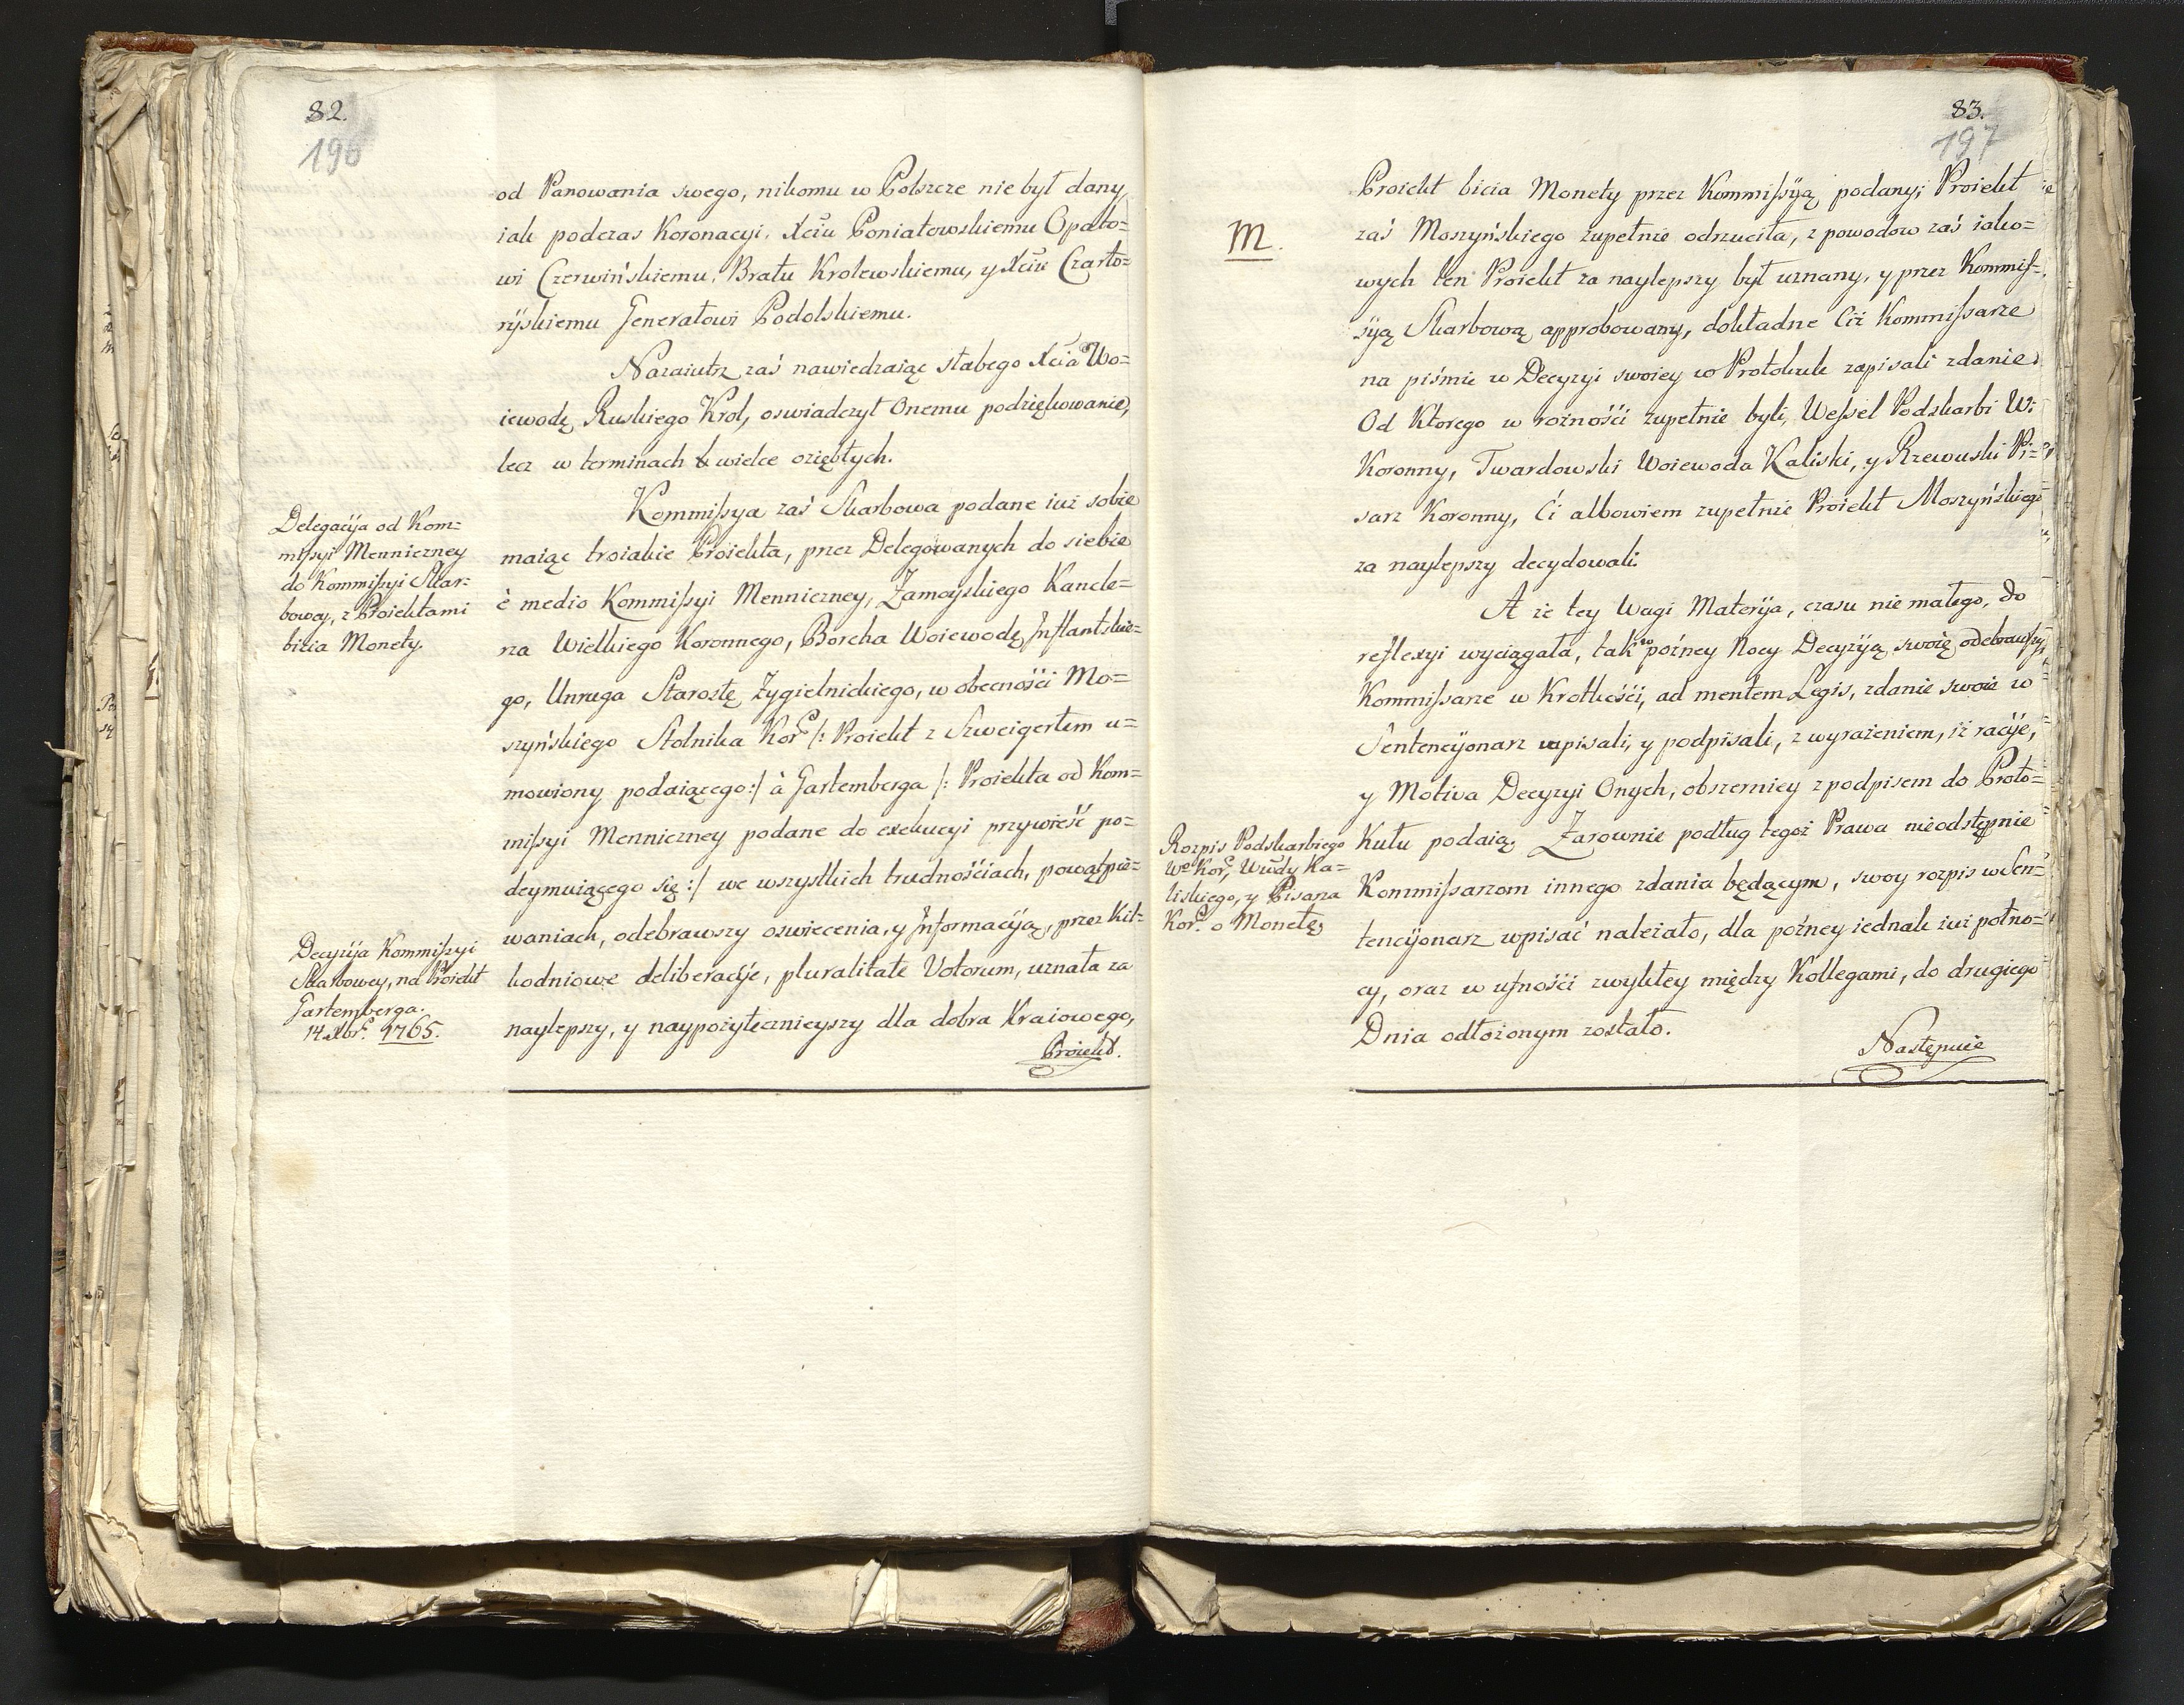 82.
196
od Panowania swego, nikomu w Polszcze nie był dany,
iak podczas Koronacyi, Xciu Poniatowskiemu Opato=
wi Czerwińskiemu, Bratu Krolewskiemu, y Xciu Czarto=
ryskiemu Generałowi Podolskiemu.
Nazaiutrz zaś nawiedzaiąc słabego Xcia Wo=
iewodę Ruskiego Krol, oswiadczył Onemu podziękowanie,
lecz w terminach wielce oziębłych.
Kommissya zaś Skarbowa podane iuż sobie
maiąc troiakie Proiekta, przez Delegowanych do siebie
è medio Kommissyi Menniczney, Zamoyskiego Kancle=
rza Wielkiego Koronnego, Borcha Woiewodę Inflantskie=
go, Unruga Starostę Zygielnickiego, w obecności Mo=
szyńskiego Stolnika Kor. /: Proiekt z Szweigertem u=
mowiony podaiącego :/ à Gartemberga /: Proiekta od Kom=
missyi Menniczney podane do exekucyi przywieść po=
deymuiącego się :/ we wszystkich trudnościach, powątpie=
waniach, odebrawszy oswiecenia, y Informacyją, przez kil=
kodniowe deliberacyje, pluralitate Votorum, uznała za
naylepszy, y naypożytecznieyszy dla dobra Kraiowego,
Proiekt.
Delegacyja od Kom=
missyi Menniczney
do Kommissyi Skar=
bowey, z Proiektami
bicia Monety.
Decyzyja Kommissyi
Skarbowey, na Proiekt
Gartemberga.
14. Xbr. 1765.
83.
197
Proiekt bicia Monety przez Kommissyją podany; Proiekt
zaś Moszyńskiego zupełnie odrzuciła, z powodow zaś iako=
wych ten Proiekt za naylepszy był uznany, y przez Kommis=
syją Skarbową approbowany, dokładne Ciż Kommissarze
na piśmie w Decyzyi swoiey w Protokule zapisali zdanie.
Od Ktorego w rożności zupełnie byli, Wessel Podskarbi W:
Koronny, Twardowski Woiewoda Kaliski, y Rzewuski Pi=
sarz Koronny, Ci albowiem zupełnie Proiekt Moszyńskiego
za naylepszy decydowali.
A że tey Wagi Materyja, czasu nie małego, do
reflexyi wyciągała, tak w poźney Nocy Decyzyją swoię odebrawszy
Kommissarze w Krotkości, ad mentem Legis, zdanie swoie w
Sentencyonarz wpisali, y podpisali, z wyrażeniem, iż racyje,
y Motiva Decyzyi Onych, obszerniey z podpisem do Proto=
Kułu podaią. Zarownie podług tegoż Prawa nieodstępnie
Kommissarzom innego zdania będącym, swoy rozpis w Sen=
tencyonarz wpisać należało, dla poźney iednak iuż połno=
cy, oraz w ufności zwykłey między Kollegami, do drugiego
Dnia odłożonym zostało.
Następuie
M.
Rozpis Podskarbiego
Wo Kor, Wwdy Ka=
liskiego, y Pisarza
Kor. o Monetę.